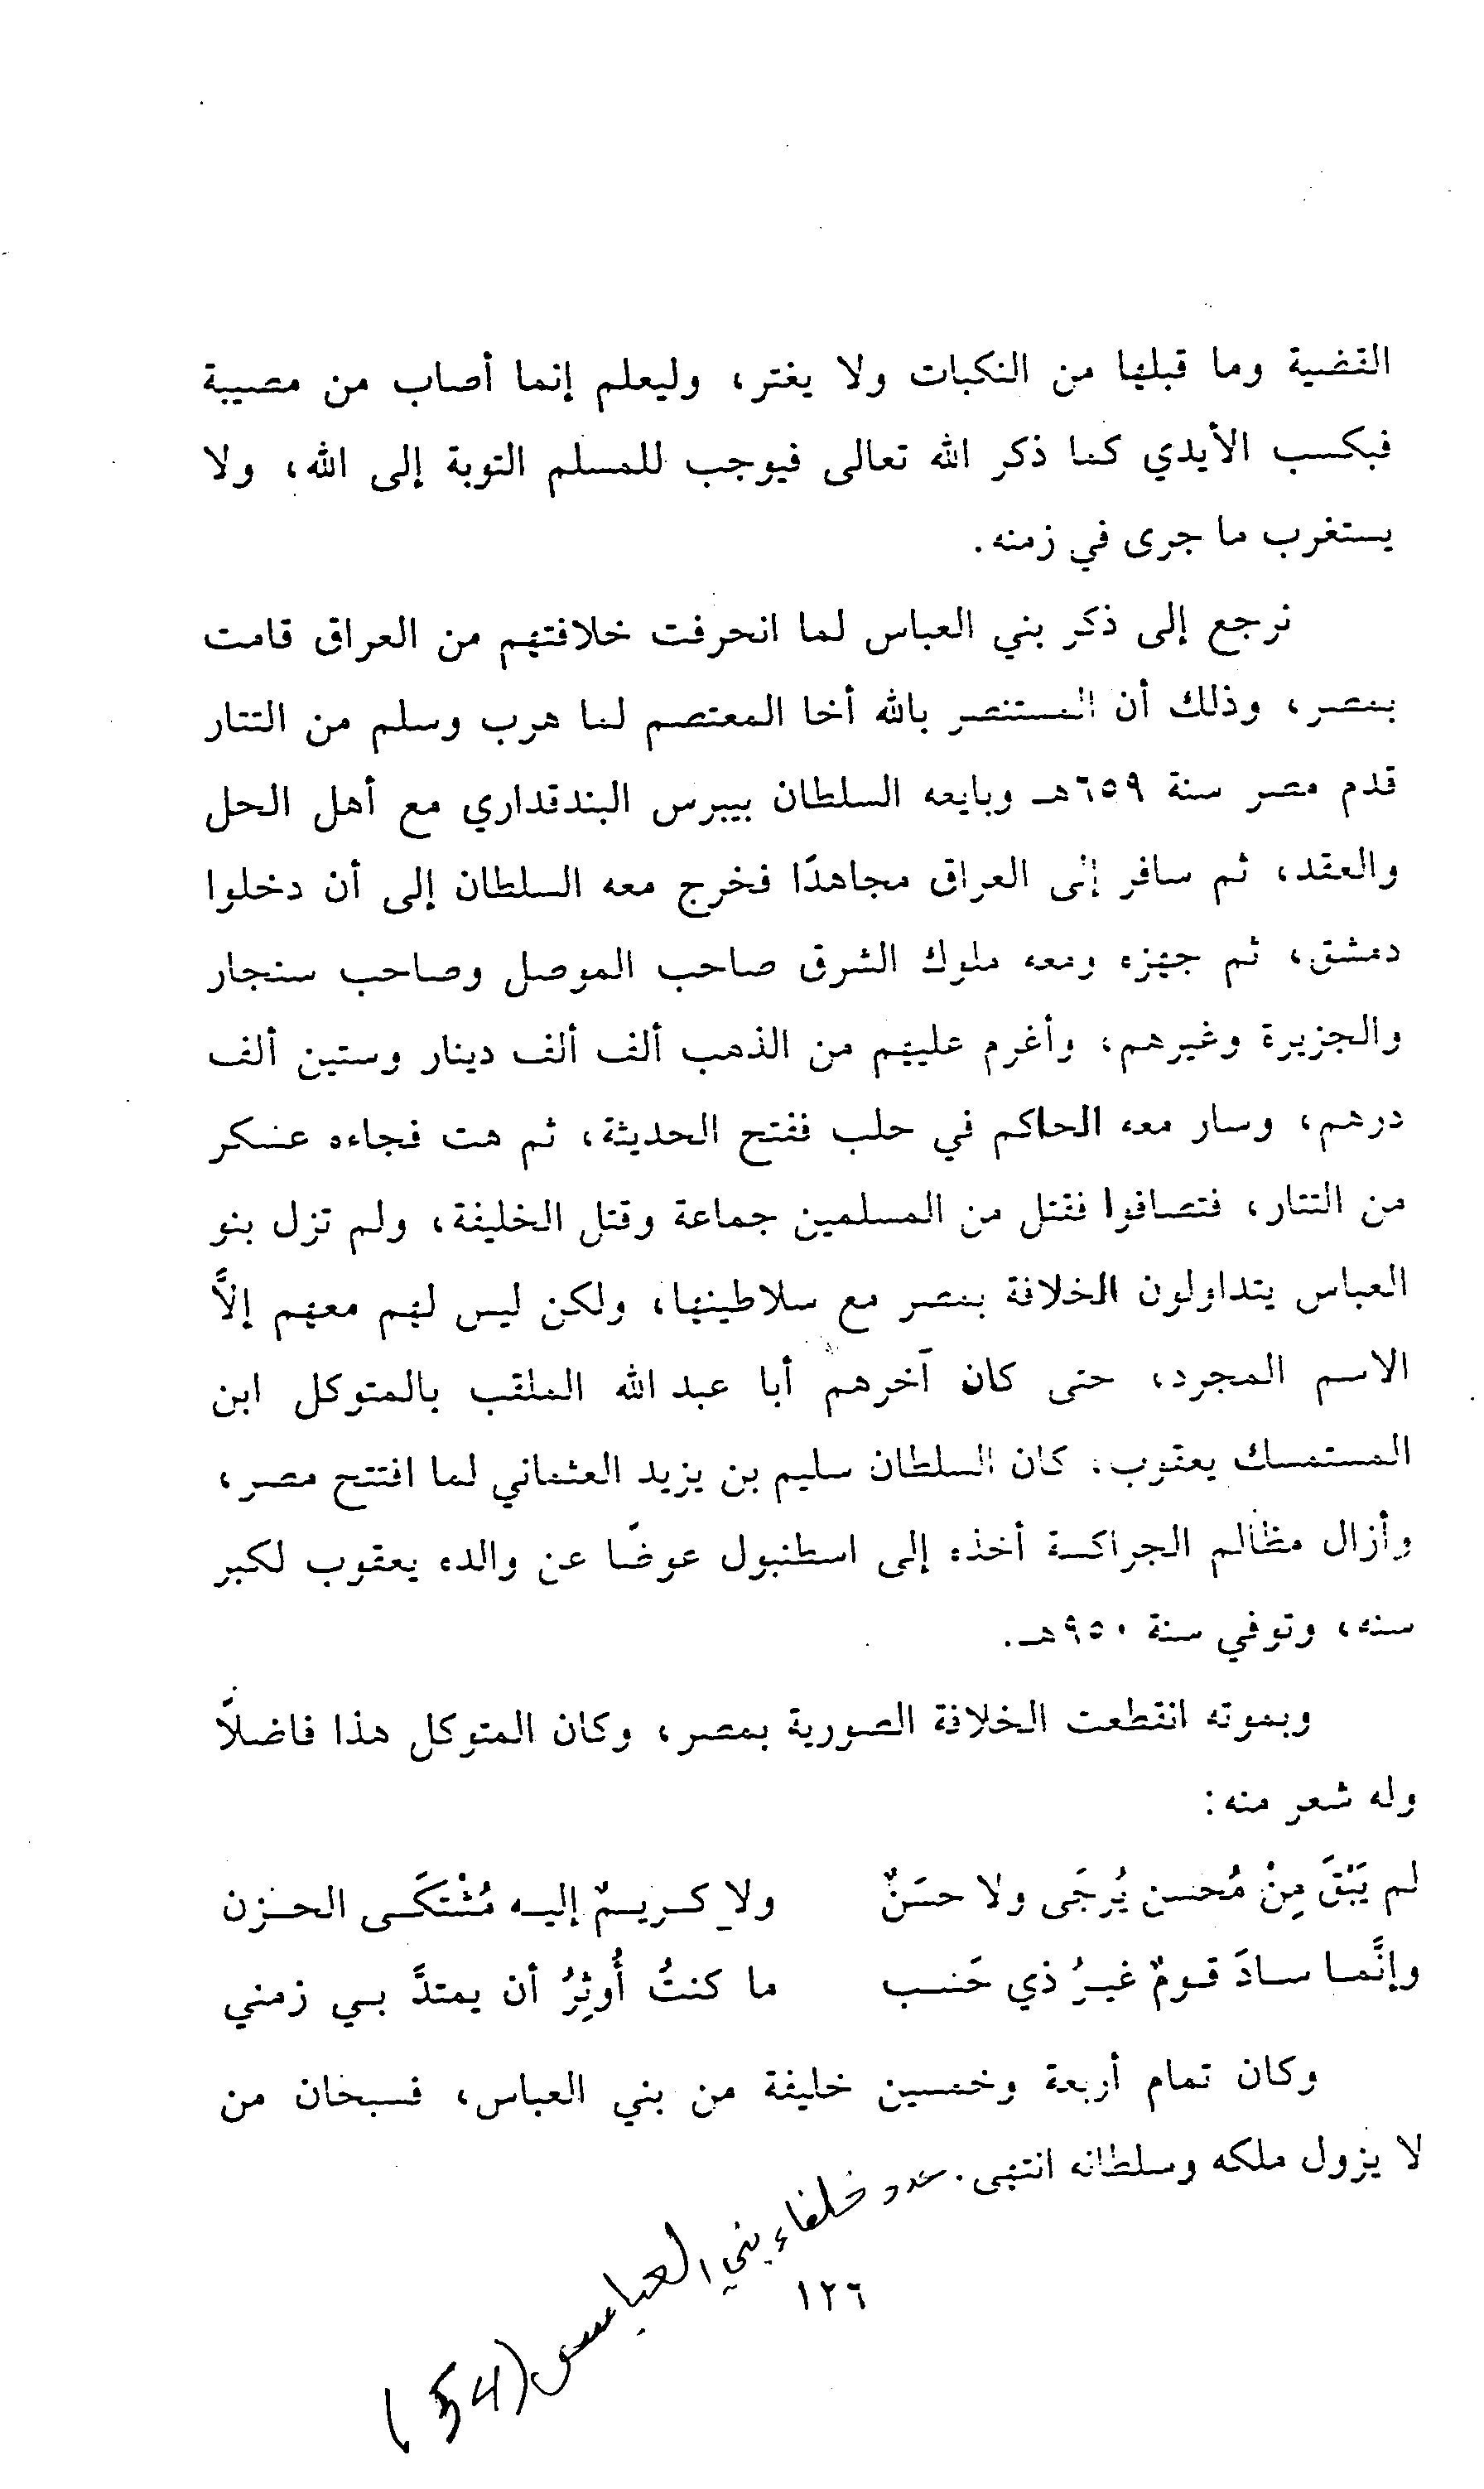 القضية وما قبلها من النكبات ولا يغتر، وليعلم إنما أصاب من مصيبة
فبكسب الأيدي كما ذكر الله تعالى فيوجب للمسلم التوبة إلى الله، ولا
يستغرب ما جرى في زمنه.
نرجع إلى ذكر بني العباس لما انحرفت خلافتهم من العراق قامت
بمصر، وذلك أن المستنصر بالله أخا المعتصم لما هرب وسلم من التتار
قدم مصر سنة ٦٥٩هـ وبايعه السلطان بيبرس البندقداري مع أهل الحل
والعقد، ثم سافر إلى العراق مجاهدًا فخرج معه السلطان إلى أن دخلوا
دمشق، ثم جهزه ومعه ملوك الشرق صاحب الموصل وصاحب سنجار
والجزيرة وغيرهم، وأغرم عليهم من الذهب ألف ألف دينار وستين ألف
درهم، وسار معه الحاكم في حلب ففتح الحديثة، ثم هت فجاءه عسكر
من التتار، فتصافوا فقتل من المسلمين جماعة وقتل الخليفة، ولم تزل بنو
العباس يتداولون الخلافة بمصر مع سلاطينها، ولكن ليس لهم معهم إلاَّ
الاسم المجرد، حتى كان آخرهم أبا عبد الله الملقب بالمتوكل ابن
المستمسك يعقوب. كان السلطان سليم بن يزيد العثماني لما افتتح مصر،
وأزال مظالم الجراكسة أخذه إلى اسطنبول عوضًا عن والده يعقوب لكبر
سنه، وتوفي سنة ٩٥٠هـ.
وبموته انقطعت الخلافة الصورية بمصر، وكان المتوكل هذا فاضلاً
وله شعر منه:
لم يَبْقَ مِنْ مُحسن يُرجَى ولا حسَنٌ ولا كريمٌ إليه مُشْتكَى الحزن
وإنَّما سادَ قومٌ غيرُ ذي حَسب ما كنتُ أُوثِرُ أن يمتدَّ بي زمني
وكان تمام أربعة وخمسين خليفة من بني العباس، فسبحان من
لا يزول ملكه وسلطانه انتهى.
عدد خلفاء بني العباس (54)
١٢٦